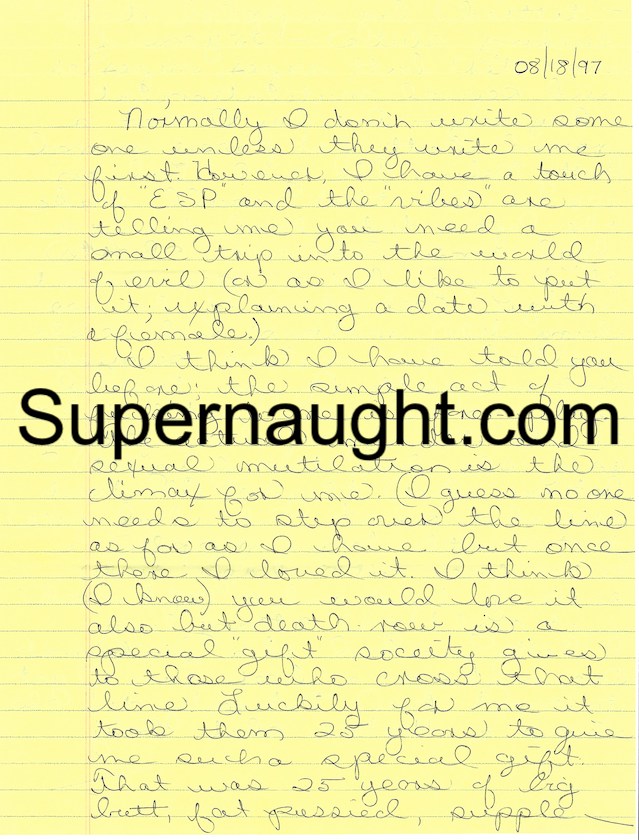 08/18/97
Normally I don't write some
one unless they write me
first. However, I have a touch
of "ESP" and the "vibes" are
telling me you need a
small trip into the world
of evil (or as I like to put
it; explaining a date with
a female.)
I think I have told you
before; the simple act of
Supernaught.com
sexual mutilation is the
climax for me. (I guess no one
needs to step over the line
as far as I have but once
there I loved it. I think
(I know) you would love it
also but death row is a
special "gift" society gives
to those who cross that
line. Luckily for me it
took them 25 years to give
me such a special gift.
That was 25 years of big
butt, fat pussied, supple